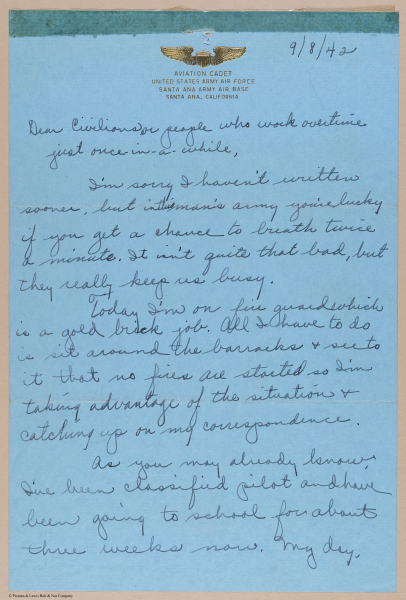 9/8/42
AVIATION CADET
UNITED STATES ARMY AIR FORCE
SANTA ANA ARMY AIR BASE
SANTA ANA, CALIFORNIA
Dear Civilians or people who work overtime
just once-in-a-while,
I'm sorry I haven't written
sooner, but in this man's army you're lucky
if you get a chance to breath twice
a minute. It isn't quite that bad, but
they really keep us busy.
Today I'm on fire guard which
is a gold brick job. All I have to do
is sit around the barracks & see to
it that no fires are started so I'm
taking advantage of the situation &
catching up on my correspondence.
As you may already know,
I've been classified pilot and have
been going to school for about
three weeks now. My day,
© Pioneer & Lewis Bolt & Nut Company